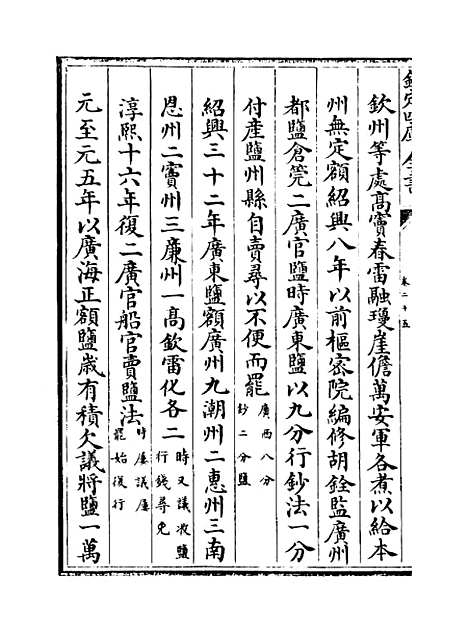 欽定四庫全書
卷二十五
欽州等處高竇春雷融瓊崖儋萬安軍各煮以給本
州無定額紹興八年以前樞密院編修胡銓監廣州
都鹽倉筦二廣官鹽時廣東鹽以九分行鈔法一分
付產鹽州縣自賣尋以不便而罷廣西八分鈔二分鹽
紹興三十二年廣東鹽額廣州九潮州二惠州三南
恩州二竇州三廉州一高欽雷化各二時又議收鹽行錢尋免
淳熙十六年復二廣官船官賣鹽法時屢議屢罷始復行
元至元五年以廣海正額鹽歲有積欠議將鹽一萬